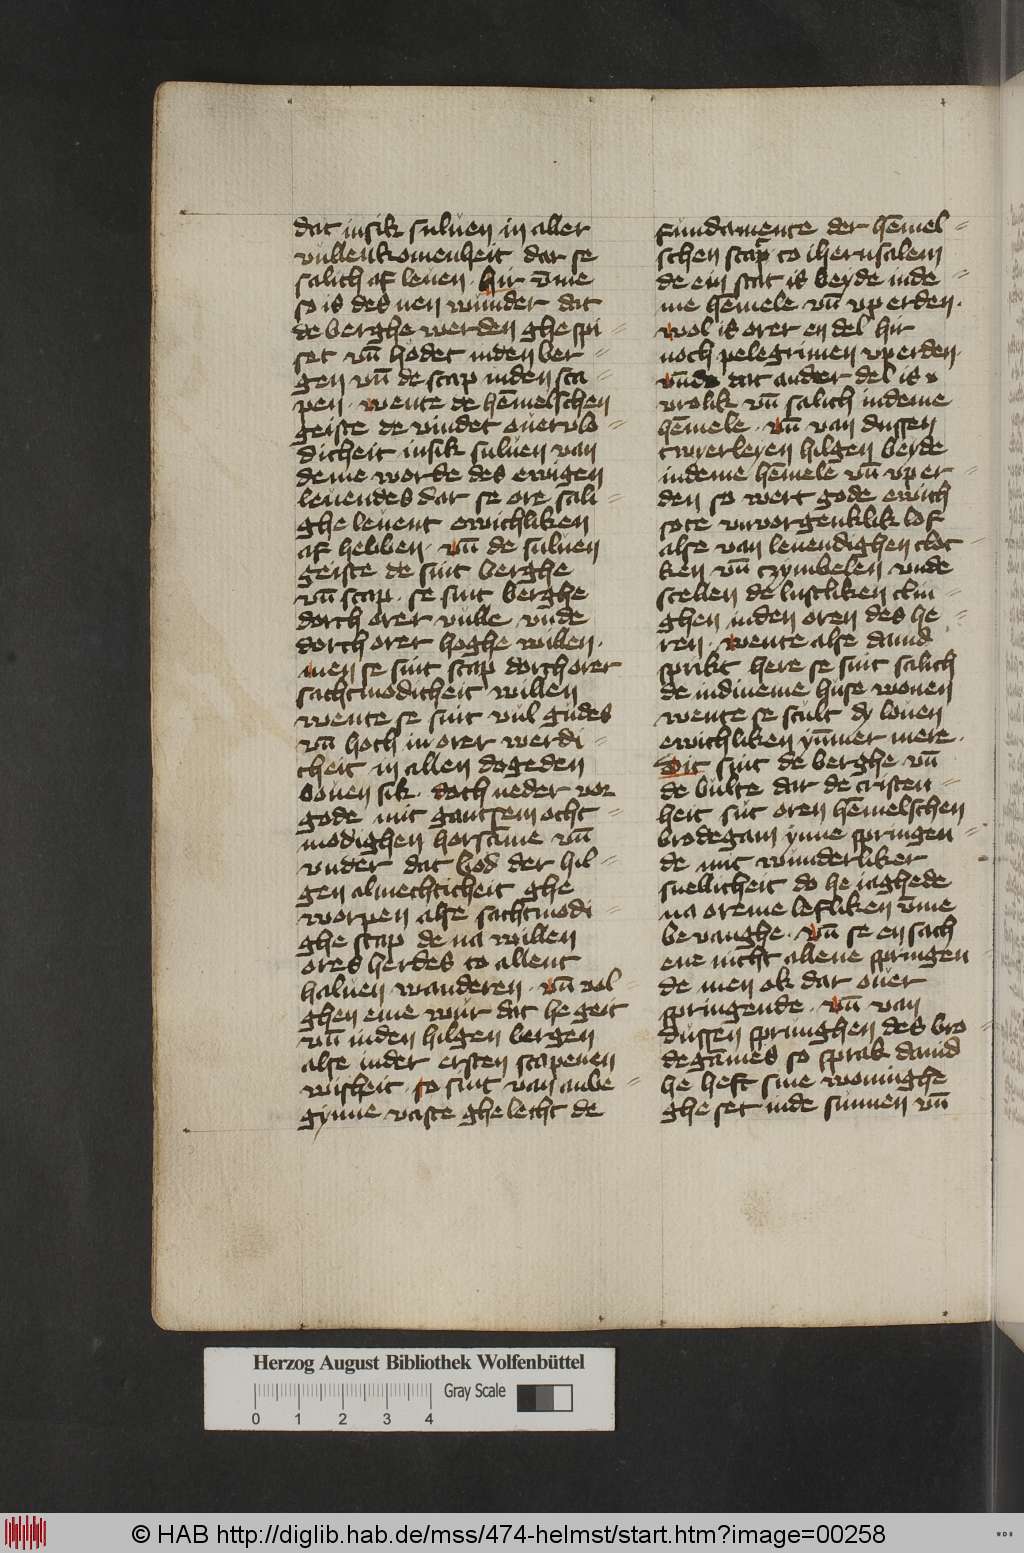 dat in sik suluen in aller
vullenkomenheit dar se
salich af leuen · hir v̄me
so is des nen wunder dat
de berghe werden ghe spi⸗
set vn̄ hodet in den ber⸗
gen vn̄ de scap in den sca⸗
pen · wente de hēmelschen
geiste de vindet ouervlo⸗
dicheit in sik suluen van
deme worde des ewigen
leuendes dar se ore sali⸗
ghe leuent ewichliken
af hebben · vn̄ de suluen
geiste de sint berghe
vn̄ scap · se sint berghe
dorch orer vulle vnde
dorch orer hoghe willen ·
men se sint scap dorch orer
sachtmodicheit willen
wente se sint vul gudes
vn̄ hoch in orer werdi⸗
cheit in allen dogeden
bouen sik · doch neder vor
gode mit gantsem ocht⸗
modighen horsāme vn̄
vnder dat bod der hil⸗
gen almechticheit ghe
worpen alse sachtmodi⸗
ghe scap de na willen
ores herdes to allent
haluen wanderen · vn̄ vol⸗
ghen eme wur dat he geit
vn̄ in den hilgen bergen
alse in der ersten scapenen
wisheit · so sint van anbe⸗
gynne vaste ghe lecht de
fundamente der hēmel⸗
schen stap to iherusalem
de ein stat is beyde in de⸗
me hēmele vn̄ vp erden ·
wol is orer en del hir
noch pelegrimen vp erden ·
vnde dat ander del is
vrolik vn̄ salich in deme
hēmele · vn̄ van dussen
twierleyen hilgen beyde
in deme hēmele vn̄ vp er⸗
den so wert gode ewich
sote vnvorgenklik lof
alse van leuendighen cloc⸗
ken vn̄ czymbelen vnde
scellen de lustliken clin⸗
ghen in den oren des he⸗
ren · wente alse dauid
sprikt here se sint salich
de in dineme huse wonen
wente se scult dy louen
ewichliken yn̄mer mere ·
Dit sint de berghe vn̄
de bulte dar de cristen⸗
heit sut oren hēmelschen
brodegam ynne springen⸗
de mit wunderliker
snellicheit do he iaghede
na oreme lefliken v̄me
bevanghe · vn̄ se en sach
ene nicht allene springen
de men ok dar ouer
springende · vn̄ van
dussen sprunghen des bro⸗
degāmes so sprak dauid
he heft sine woninghe
ghe set in de sunnen vn̄
Herzog August Bibliothek Wolfenbüttel
Gray Scale
0 1 2 3 4
© HAB http://diglib.hab.de/mss/474-helmst/start.htm?image=00258